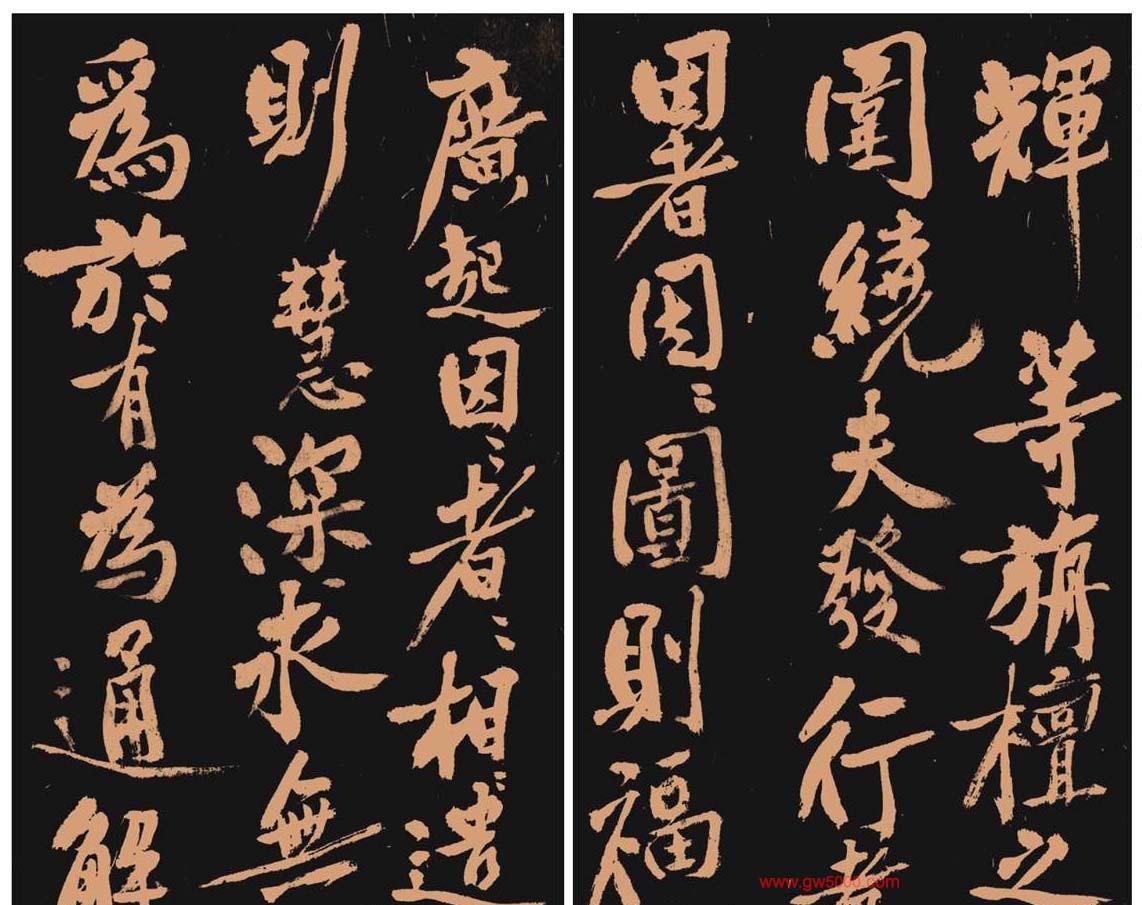 輝等旃檀之
圍繞夫發行者
因者因〻圓則福
廣起因〻者〻相〻遣
則慧深求無
爲於有為通解
www.gw5000.com